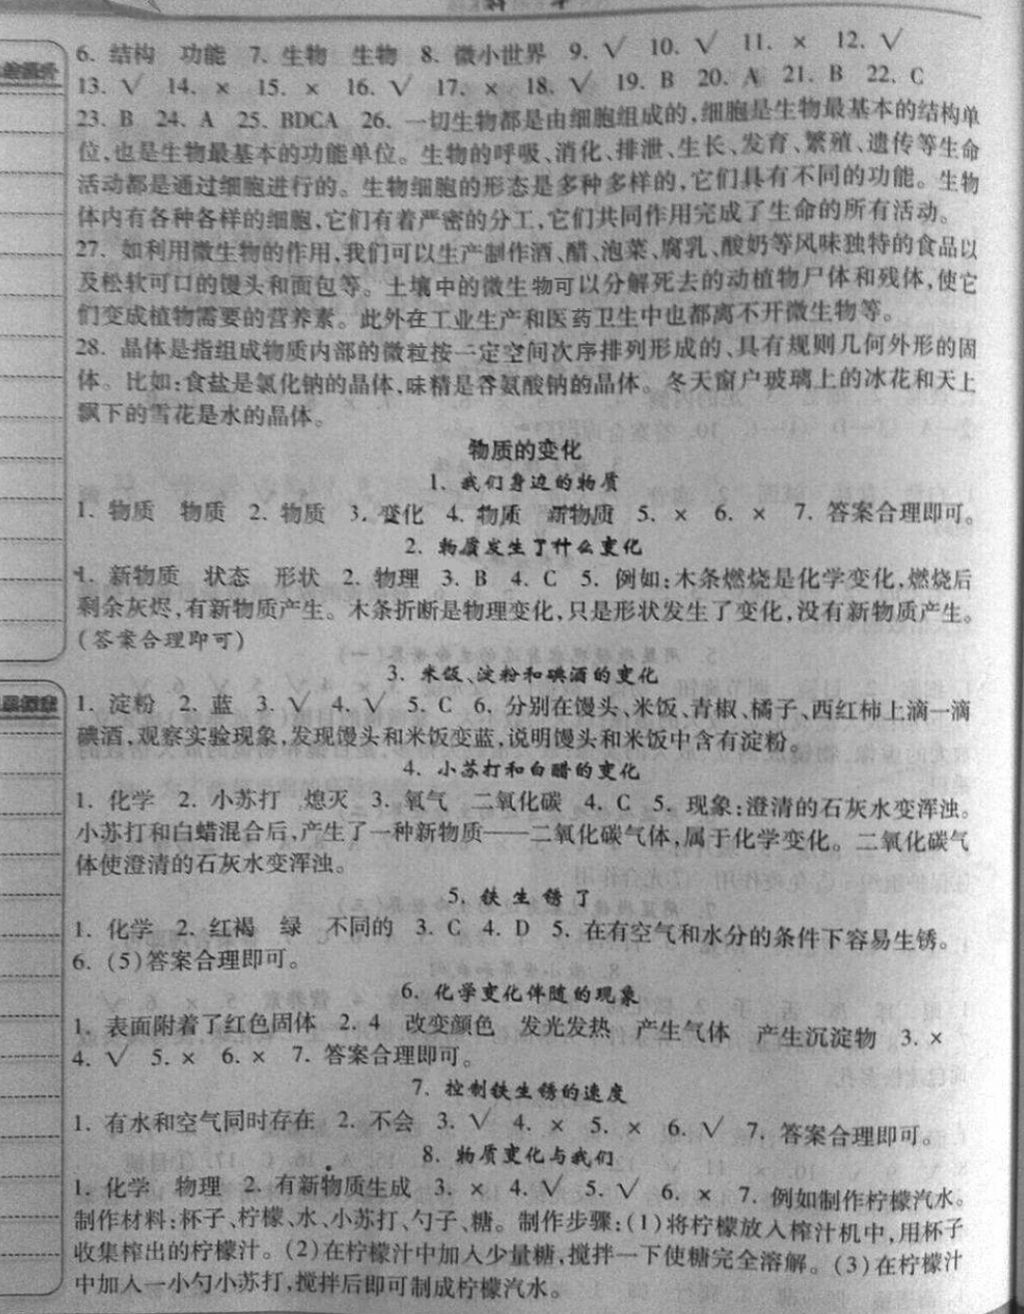 6. 结构 功能 7. 生物 生物 8. 微小世界 9. √ 10. √ 11. × 12. √
13. √ 14. × 15. × 16. √ 17. × 18. √ 19. B 20. A 21. B 22. C
23. B 24. A 25. BDCA 26. 一切生物都是由细胞组成的,细胞是生物最基本的结构单
位,也是生物最基本的功能单位。生物的呼吸、消化、排泄、生长、发育、繁殖、遗传等生命
活动都是通过细胞进行的。生物细胞的形态是多种多样的,它们具有不同的功能。生物
体内有各种各样的细胞,它们有着严密的分工,它们共同作用完成了生命的所有活动。
27. 如利用微生物的作用,我们可以生产制作酒、醋、泡菜、腐乳、酸奶等风味独特的食品以
及松软可口的馒头和面包等。土壤中的微生物可以分解死去的动植物尸体和残体,使它
们变成植物需要的营养素。此外在工业生产和医药卫生中也都离不开微生物等。
28. 晶体是指组成物质内部的微粒按一定空间次序排列形成的、具有规则几何外形的固
体。比如:食盐是氯化钠的晶体,味精是谷氨酸钠的晶体。冬天窗户玻璃上的冰花和天上
飘下的雪花是水的晶体。
物质的变化
1. 我们身边的物质
1. 物质 物质 2. 物质 3. 变化 4. 物质 新物质 5. × 6. × 7. 答案合理即可。
2. 物质发生了什么变化
1. 新物质 状态 形状 2. 物理 3. B 4. C 5. 例如:木条燃烧是化学变化,燃烧后
剩余灰烬,有新物质产生。木条折断是物理变化,只是形状发生了变化,没有新物质产生。
(答案合理即可)
3. 米饭、淀粉和碘酒的变化
1. 淀粉 2. 蓝 3. √ 4. √ 5. C 6. 分别在馒头、米饭、青椒、橘子、西红柿上滴一滴
碘酒,观察实验现象,发现馒头和米饭变蓝,说明馒头和米饭中含有淀粉。
4. 小苏打和白醋的变化
1. 化学 2. 小苏打 熄灭 3. 氧气 二氧化碳 4. C 5. 现象:澄清的石灰水变浑浊。
小苏打和白蜡混合后,产生了一种新物质——二氧化碳气体,属于化学变化。二氧化碳气
体使澄清的石灰水变浑浊。
5. 铁生锈了
1. 化学 2. 红褐 绿 不同的 3. C 4. D 5. 在有空气和水分的条件下容易生锈。
6. (5)答案合理即可。
6. 化学变化伴随的现象
1. 表面附着了红色固体 2. 4 改变颜色 发光发热 产生气体 产生沉淀物 3. ×
4. √ 5. × 6. × 7. 答案合理即可。
7. 控制铁生锈的速度
1. 有水和空气同时存在 2. 不会 3. √ 4. × 5. × 6. √ 7. 答案合理即可。
8. 物质变化与我们
1. 化学 物理 2. 有新物质生成 3. × 4. √ 5. √ 6. × 7. 例如制作柠檬汽水。
制作材料:杯子、柠檬、水、小苏打、勺子、糖。制作步骤:(1)将柠檬放入榨汁机中,用杯子
收集榨出的柠檬汁。(2)在柠檬汁中加入少量糖,搅拌一下使糖完全溶解。(3)在柠檬汁
中加入一小勺小苏打,搅拌后即可制成柠檬汽水。